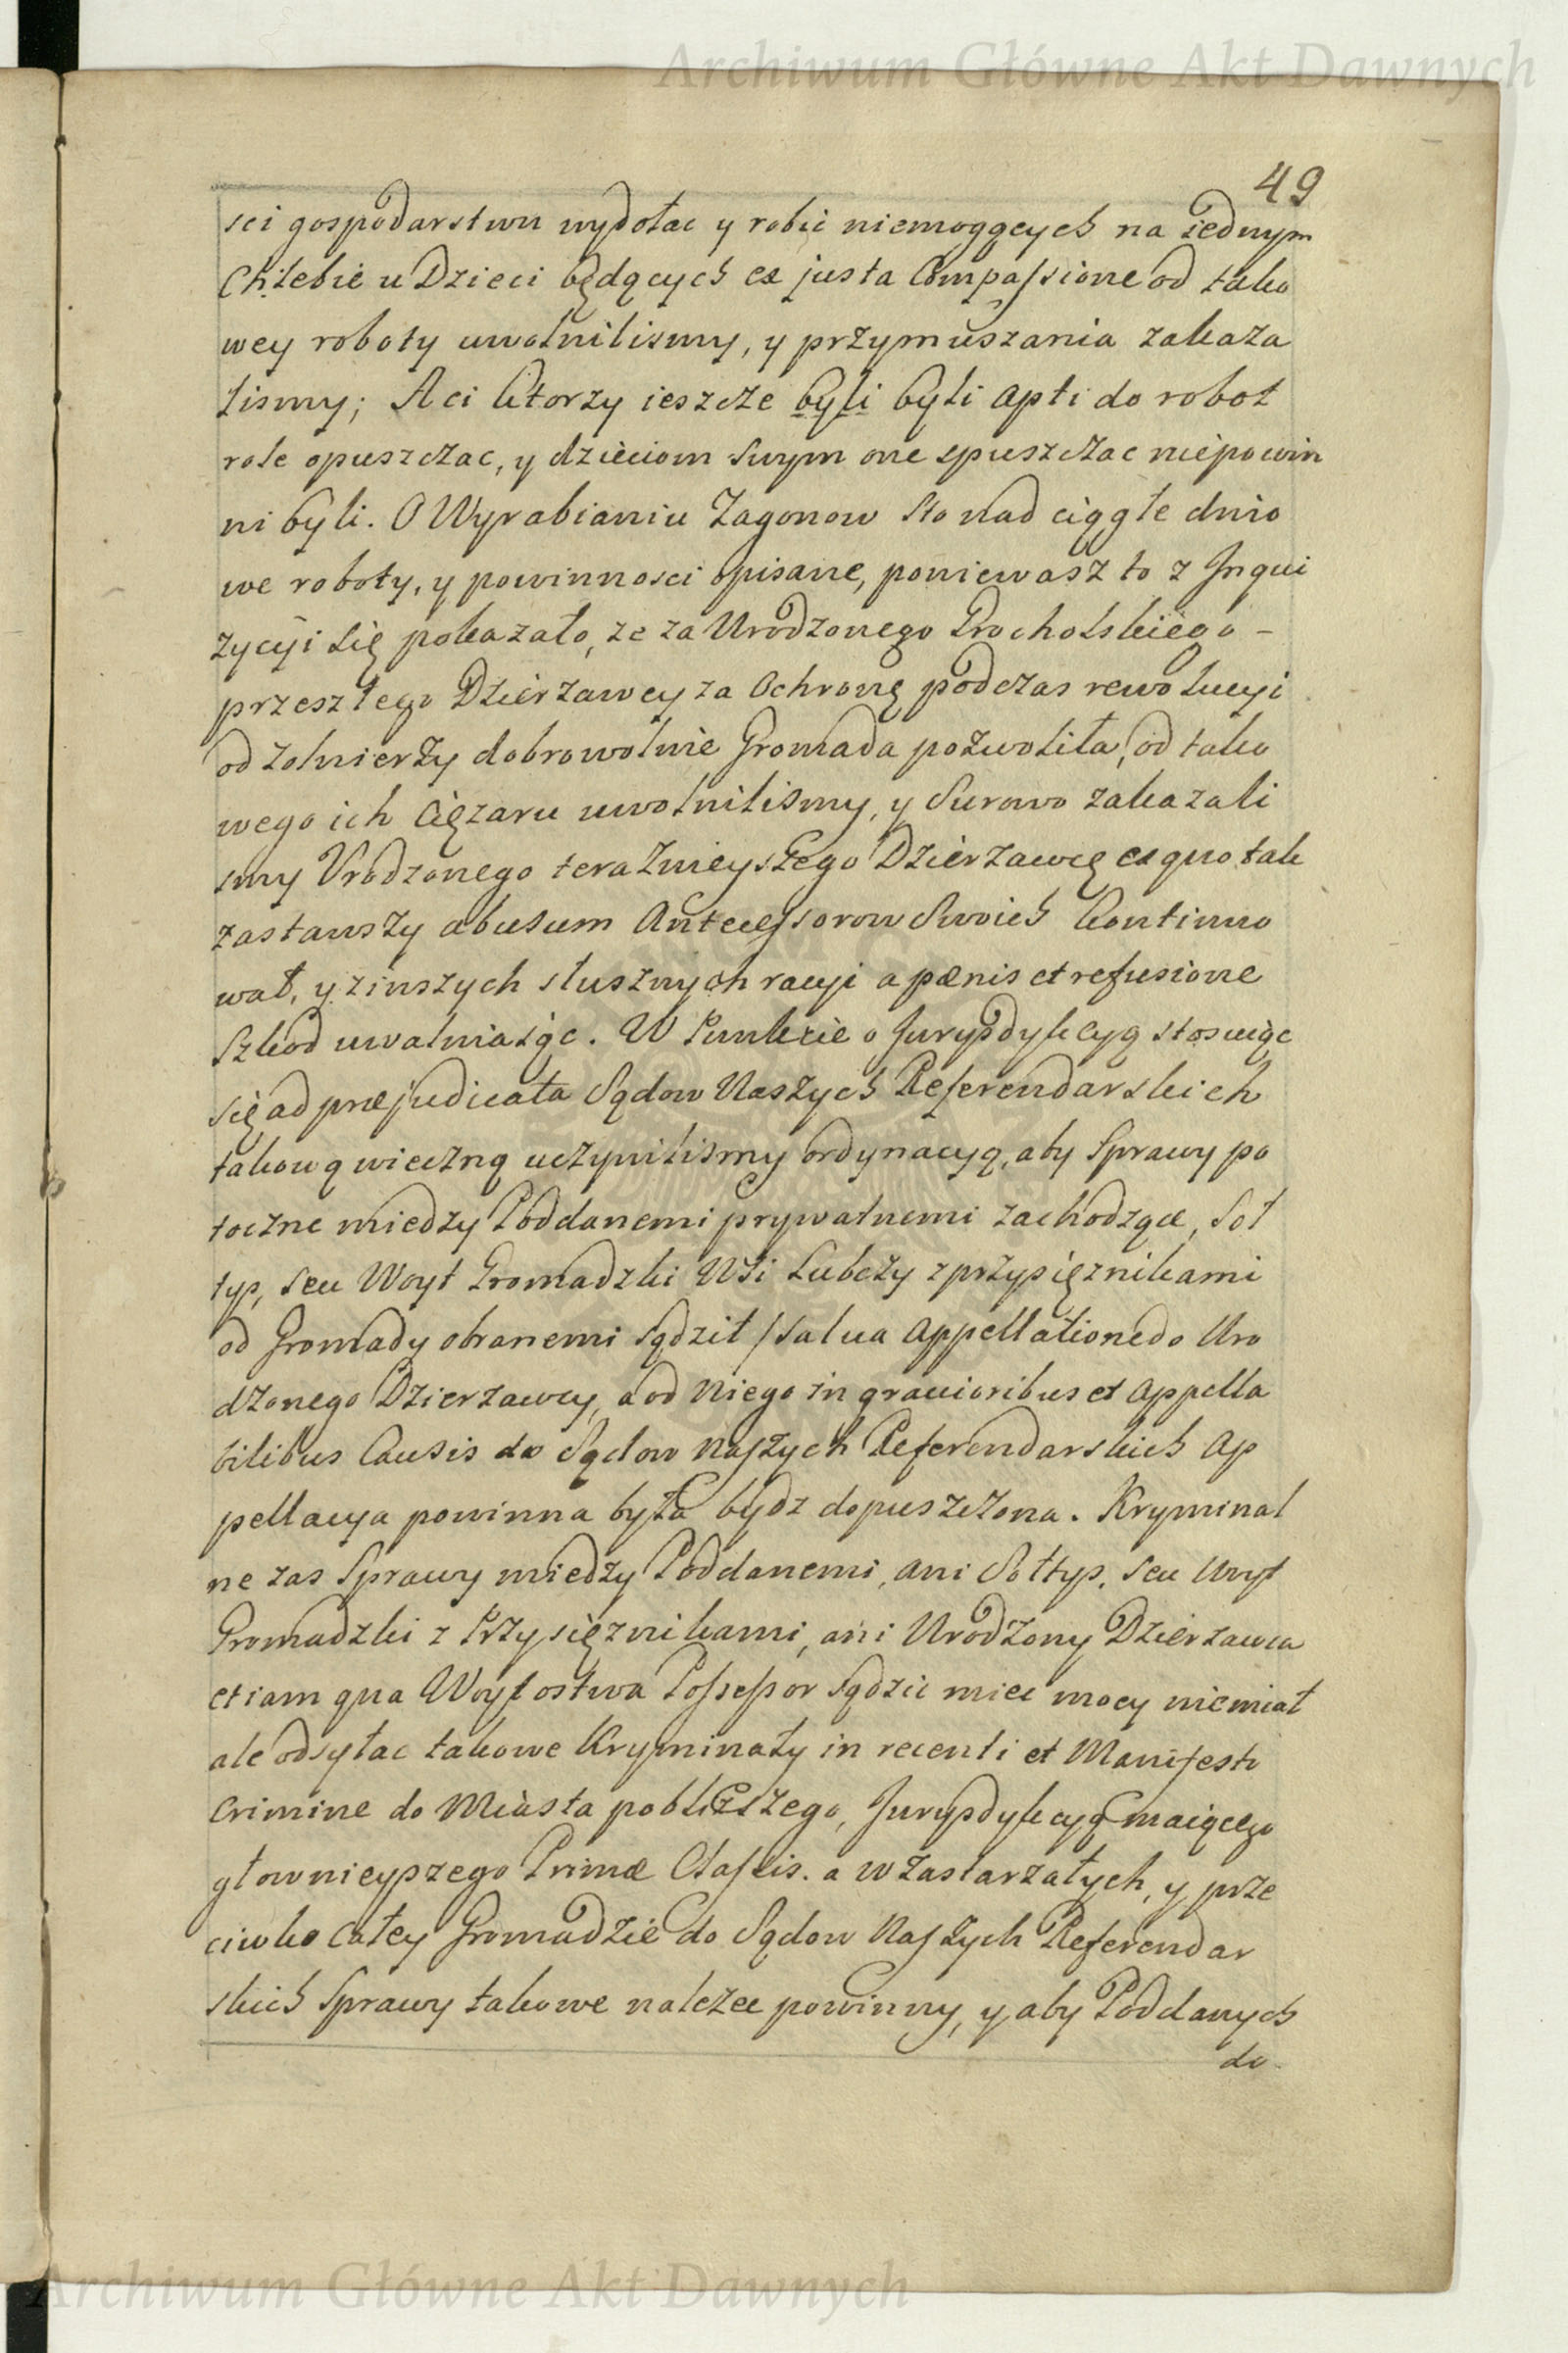 Archiwum Główne Akt Dawnych
49
sci gospodarstwu wydołac y robić niemogących na iednym
Chlebie u Dzieci będących ex justa Compassione od tako
wey roboty uwolnilismy, y przymuszania zakaza
lismy; A ci ktorzy ieszcze byli byli apti do robot
role opuszczac, y dzieciom swym one spuszczac niepowin
ni byli. O Wyrabianiu Zagonow sto nad ciągłe dnio
we roboty, y powinnosci opisane, poniewasz to z Inqui
zycyi się pokazało, ze za Urodzonego Procholskiego –
przeszłego Dzierzawcy za Ochronę podczas rewolucyi
od zolnierzy dobrowolnie Gromada pozwoliła, od tako
wego ich Cięzaru uwolnilismy, y Surowo zakazali
smy Urodzonego teraznieyszego Dzierzawcę ex quo tak
zastawszy abusum Antecessorow Swoich kontinuo
wał, y z inszych słusznych racyi a pœnis et refusione
Szkod uwalniaiąc. W Punkcie o Jurysdykcyą stosuiąc
się ad præjudicata Sądow Naszych Referendarskich
takową wieczną uczynilismy ordynacyą, aby Sprawy po
toczne miedzy Poddanemi prywatnemi zachodzące, Soł
tys, seu Woyt Gromadzki Wsi Lubczy z przysięznikami
od Gromady obranemi sądził / salva Appellatione do Uro
dzonego Dzierzawcy, a od Niego in gravioribus et appella
bilibus Causis do Sądow naszych Referendarskich Ap
pellacya powinna była bydz dopuszczona. Kryminal
ne zas Sprawy miedzy Poddanemi, ani Sołtys, seu Woyt
Gromadzki z Przysięznikami, ani Urodzony Dzierzawca
etiam qua Woytostwa Possessor sądzic miec mocy niemiał
ale odsyłac takowe Kryminały in recenti et Manifesto
Crimine do Miasta pobliższego, Jurysdykcyą maiącego
głownieyszego Primæ Classis. a w zastarzałych, y prze
ciwko całey Gromadzie do Sądow Naszych Referendar
skich Sprawy takowe nalezec powinny, y aby Poddanych
do
Archiwum Główne Akt Dawnych